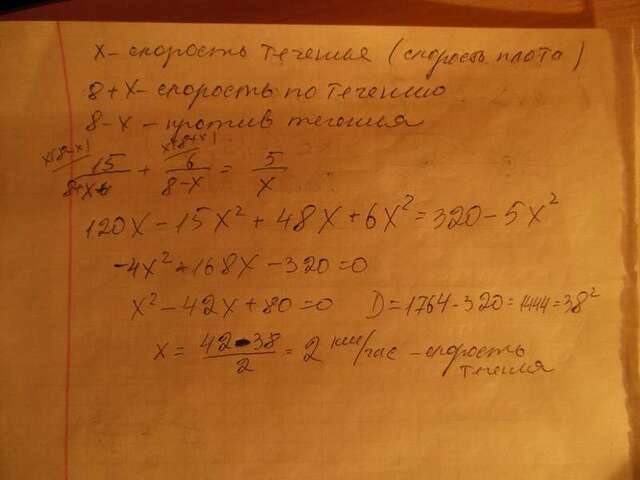 x – скорость течения (скорость плота)
8+x – скорость по течению
8-x – против течения
x(8-x) x(8+x)
15/8+x + 6/8-x = 5/x
120x - 15x² + 48x + 6x² = 320 - 5x²
-4x² + 168x - 320 = 0
x² - 42x + 80 = 0 D = 1764 - 320 = 1444 = 38²
x = 42-38/2 = 2 км/час – скорость
течения